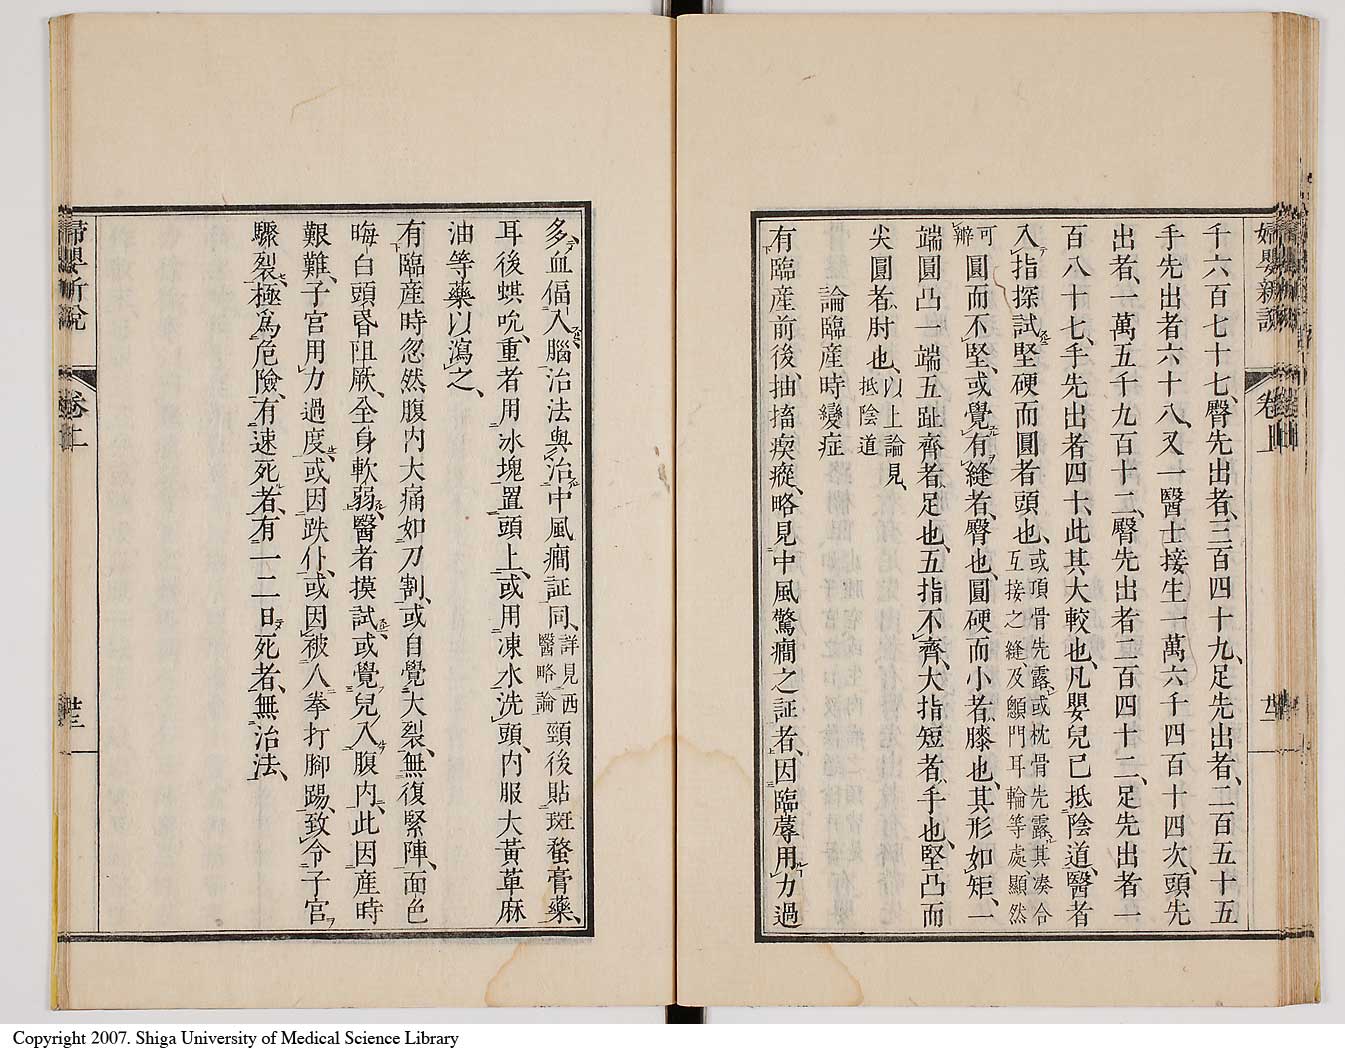 婦嬰新說 卷上 廿二
千六百七十七、臀先出者、三百四十九、足先出者、二百五十五
手先出者六十八、又一醫士接生一萬六千四百十四次、頭先
出者、一萬五千九百十二、臀先出者二百四十二、足先出者一
百八十七、手先出者四十、此其大較也、凡嬰兒已抵陰道、醫者
入指探試堅硬而圓者、頭也、或頂骨先露、或枕骨先露、其湊合
互接之縫、及顖門耳輪等處、顯然
可辨圓而不堅、或覺有縫者、臀也、圓硬而小者、膝也、其形如矩、一
端圓凸一端五趾齊者、足也、五指不齊、大指短者、手也、堅凸而
尖圓者、肘也、以上論見、
抵陰道
論臨產時變症
有臨產前後、抽搐瘈瘲、略見中風驚癎之証者、因臨蓐用力過
多、血偪入腦治法與治中風癎証同、詳見西
醫略論頸後貼斑蝥膏藥、
耳後蜞吮、重者用冰塊置頭上、或用凍水洗頭、內服大黃萆麻
油等藥以瀉之、
有臨產時忽然腹內大痛如刀割、或自覺大裂、無復緊陣、面色
晦白頭昏阻厥、全身軟弱、醫者摸試、或覺兒入腹內、此因產時
艱難、子宮用力過度、或因跌仆、或因被人拳打腳踢、致令子宮
驟裂、極為危險、有速死者、有一二日死者、無治法、
婦嬰新說 卷上 廿三
Copyright 2007. Shiga University of Medical Science Library